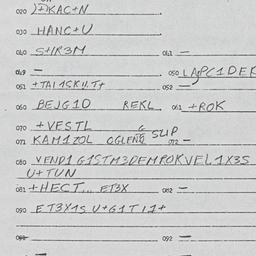 020 )+KAC+N
030 HANC+U
040 S+IR3M 041 —
049 — 050 LAPC1DER
051 +TAI1SKU.T+ 052 —
060 BEJG1O REKL 061 +ROK
070 +VESTL
071 KAM1ZOL OGLEND SLIP 072 —
080 VEND1 G1STM3DEMPOKVEL1X3S
U+TUN
081 +HECT... ET3X 082 —
090 ET3X1S U+G1T11+
098 — 092 —